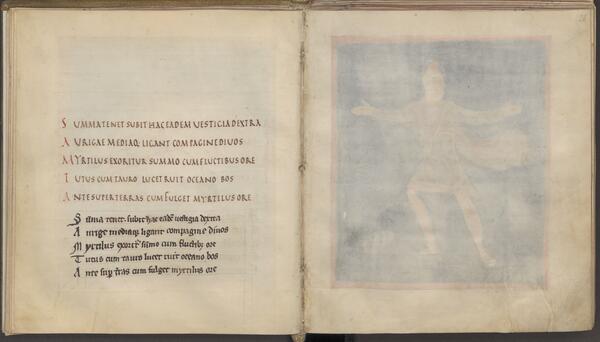 SUMMA TENET SUBIT HAEC EADEM VESTIGIA DEXTRA
AURIGAE MEDIAQ; LIGANT CONPAGINE DIVOS
MYRTILUS EXORITUR SUMMO CUM FLUCTIBUS ORE
TUTUS CUM TAURO LUCET RUIT OCEANO BOS
ANTE SUPER TERRAS CUM FULGET MYRTILUS ORE
tenet. subit hac vestigia dextra
Aurige mediaq; ligant compagine divos
Myrtilus cum ore
Tutus cum tauro lucet ruit oceano bos
Ante cum fulget myrtilus ore